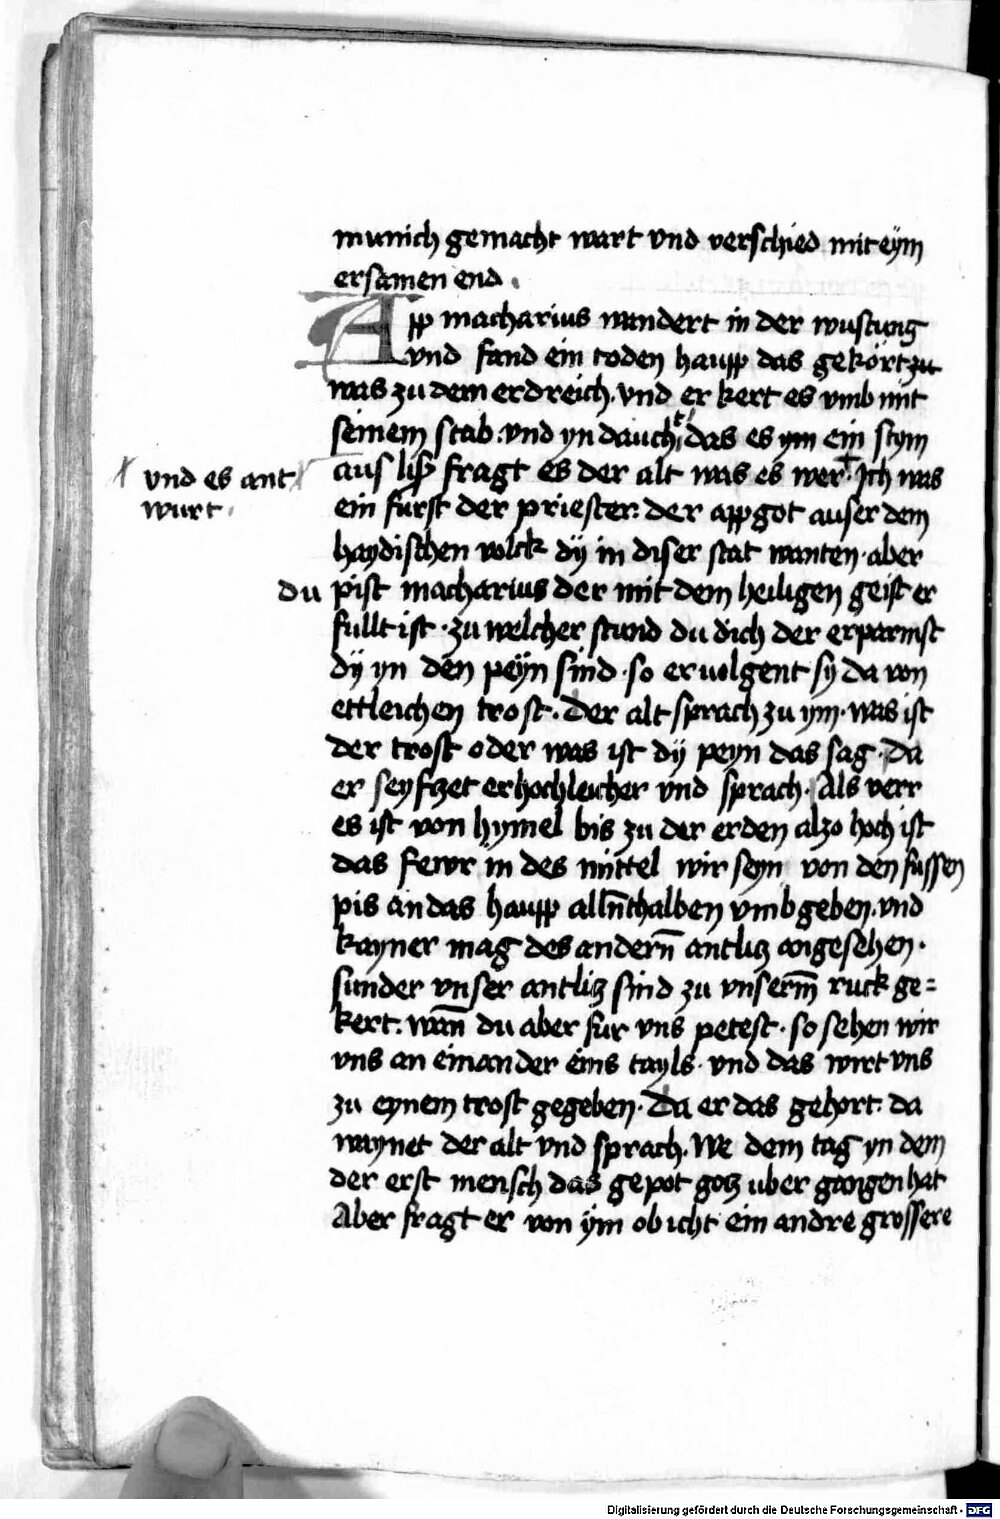 munich gemacht wart vnd verschied mit eÿm
ersamen end.
App macharius wandert in der wustung
vnd fand ein toden haupp das gekört zu
was zu dem erdreich. vnd er kert es vmb mit
seinem stab. vnd yn daucht das es ym ein stym
aus liß fragt es der alt was es wer. Ich was
vnd es ant
wurt.
ein furst der priester: der appgot auser dem
haydischen volck dÿ in diser stat wanten. aber
du pist macharius der mit dem heiligen geist er
fullt ist. zu welcher stund du dich der erparmst
dÿ yn den peÿn sind. so eruolgent sy da von
ettleichen trost. Der alt sprach zu ym. was ist
der trost oder was ist dÿ peyn das sag. Da
er seyfczet er hochleicher vnd sprach. Als verr
es ist von hymel bis zu der erden alzo hoch ist
das fewr in des mittel wir seyn von den fussen
pis an das haupp alln̄thalben vmbgeben. vnd
kayner mag des andern̄ antlicz angesehen.
sunder vnser antlicz sind zu vnserm̄ ruck ge=
kert. wan̄ du aber fur vns petest. so sehen wir
vns an einander eins tayls. vnd das wirt vns
zu eynem trost gegeben. Da er das gehort. da
waynet der alt vnd sprach. We dem tag yn dem
der erst mensch das gepot gotz uber gangen hat
Aber fragt er von ÿm ob icht ein andre grossere
Digitalisierung gefördert durch die Deutsche Forschungsgemeinschaft - DFG